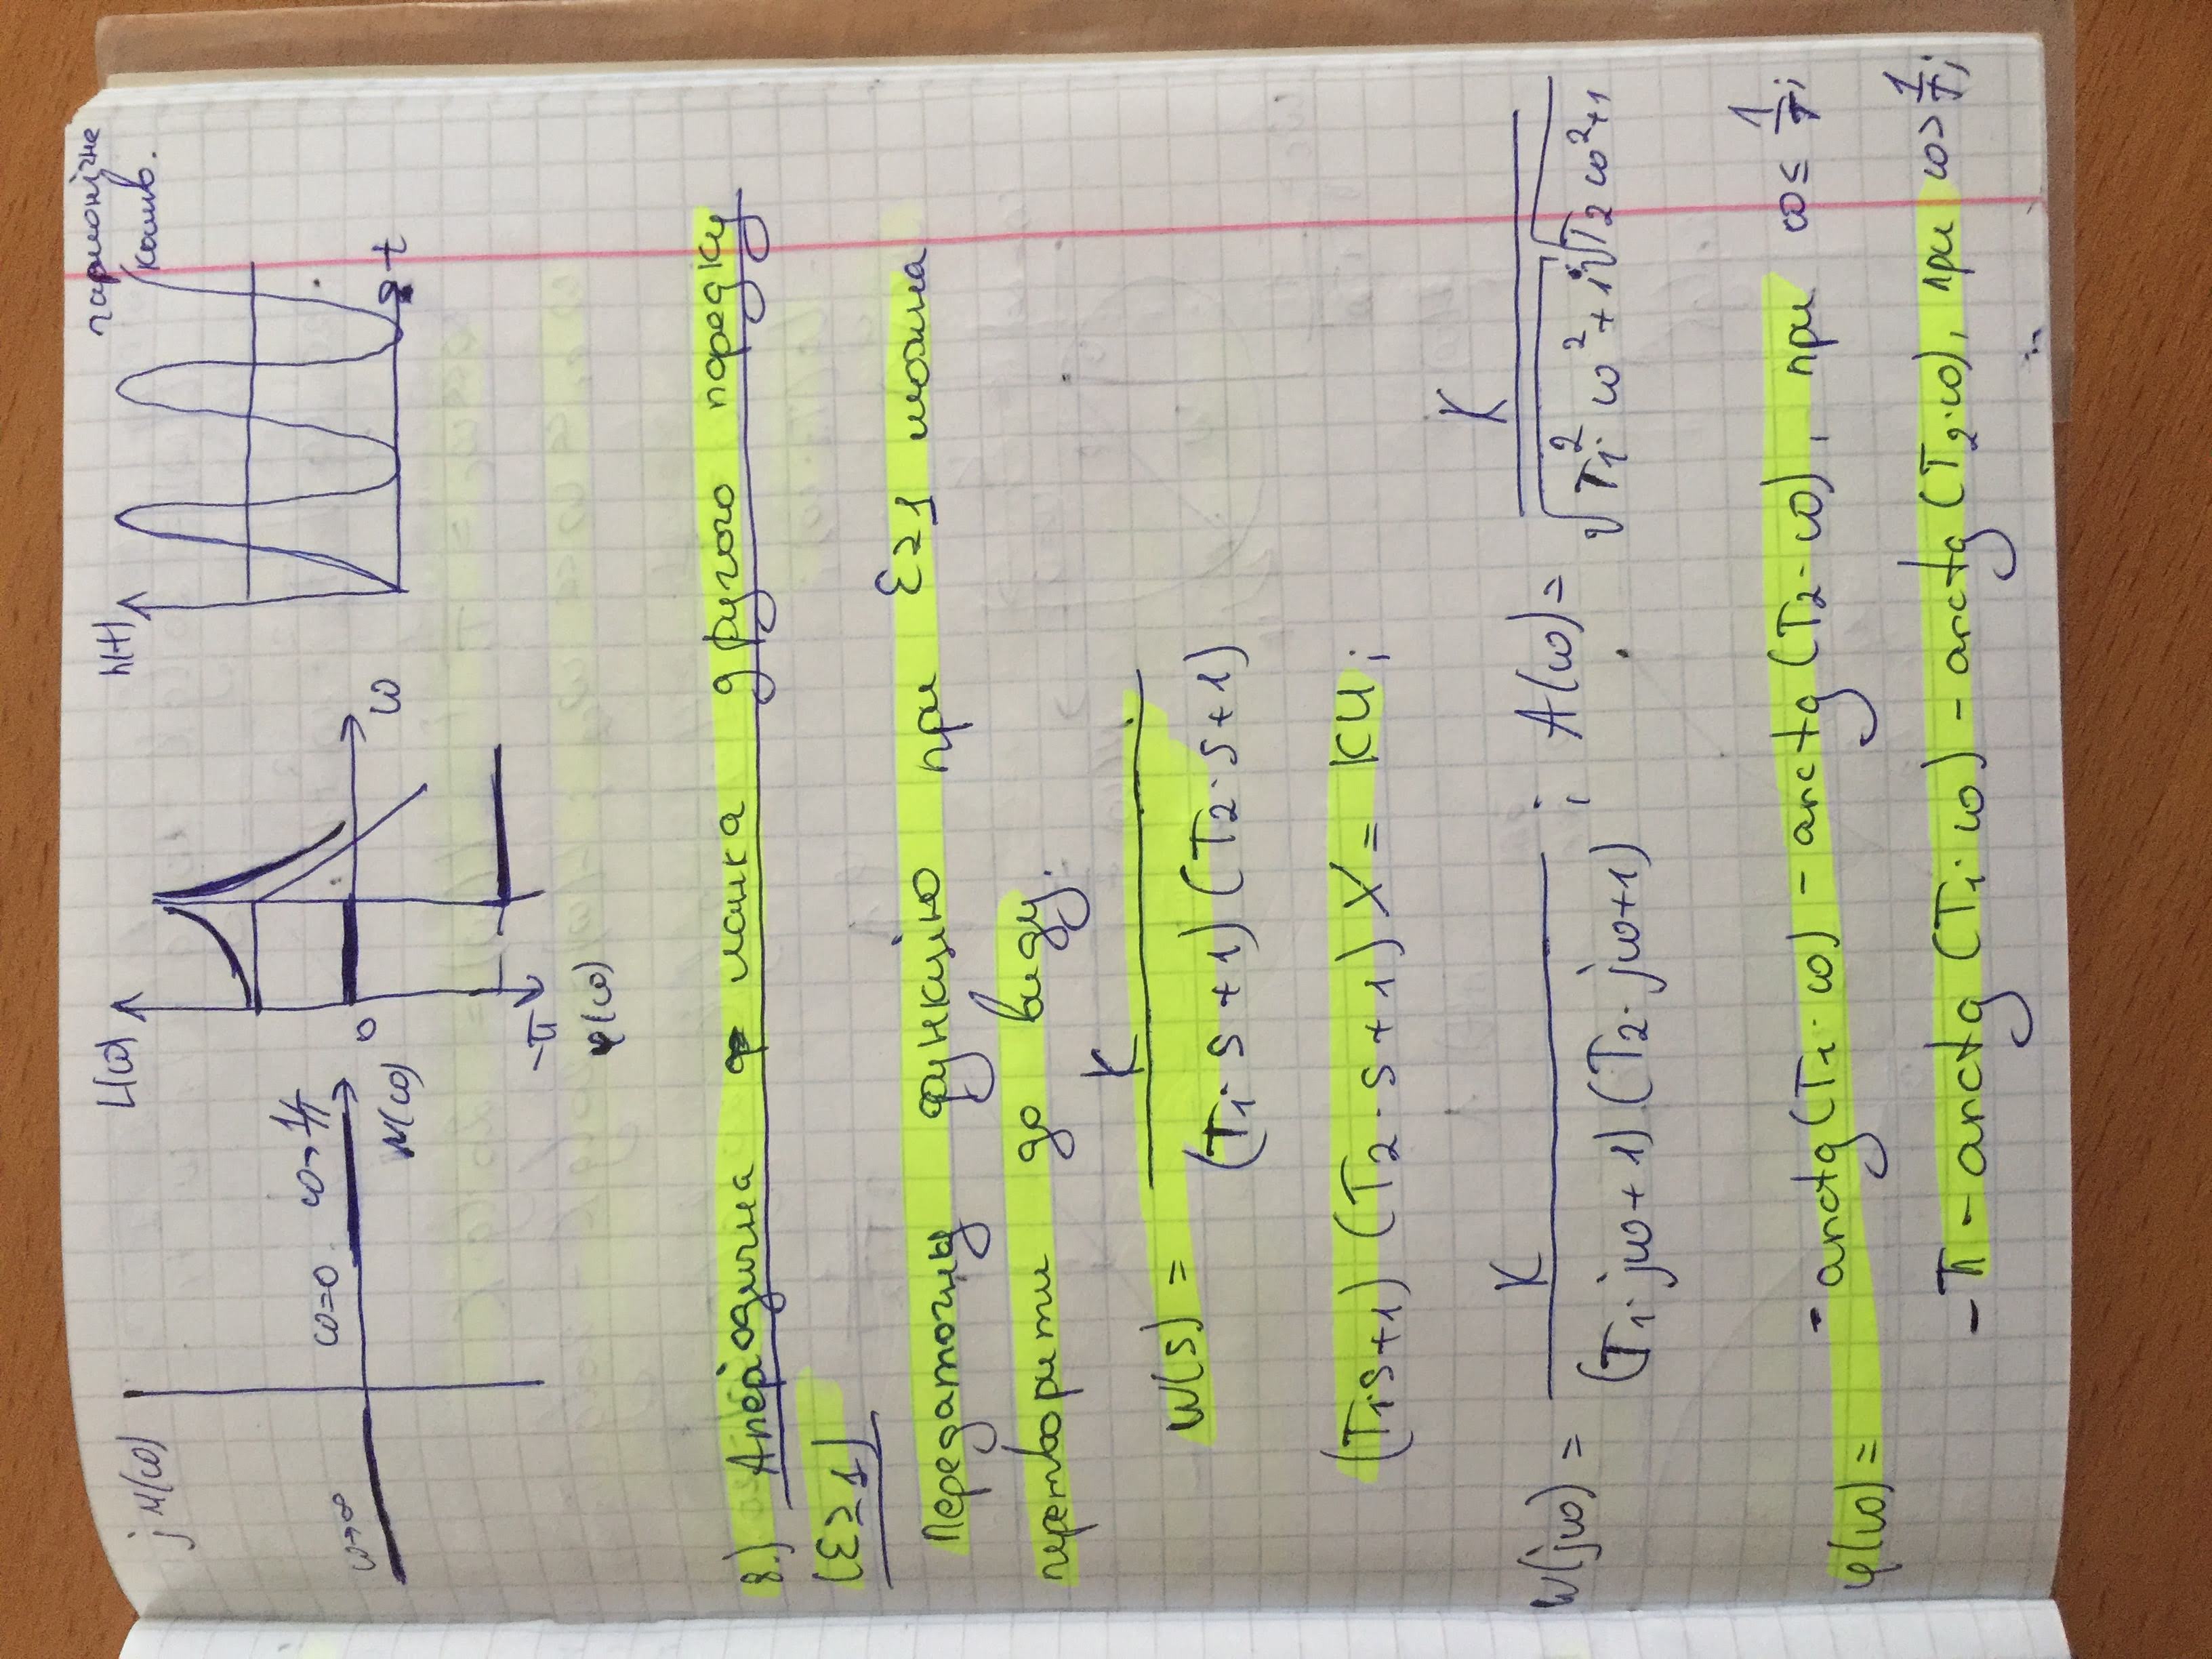 jИ(ω)
ω→∞
ω=0
ω→1/T
N(ω)
L(ω)
0
ω
-π
φ(ω)
h(t)
гармонічне
колив.
t
8.) Аперіодична ланка другого порядку
(ξ≥1)
Передаточну функцію при ξ≥1 можна
перетворити до виду.
W(s) = K / (T₁·s+1)(T₂·s+1)
(T₁·s+1)(T₂·s+1)X = KU;
W(jω) = K / (T₁·jω+1)(T₂·jω+1) ; A(ω) = K / √(T₁²·ω²+1) √(T₂²ω²+1)
φ(ω) = -arctg(T₁·ω) - arctg(T₂·ω), при ω≤ 1/T;
-π - arctg(T₁·ω) - arctg(T₂·ω), при ω> 1/T;